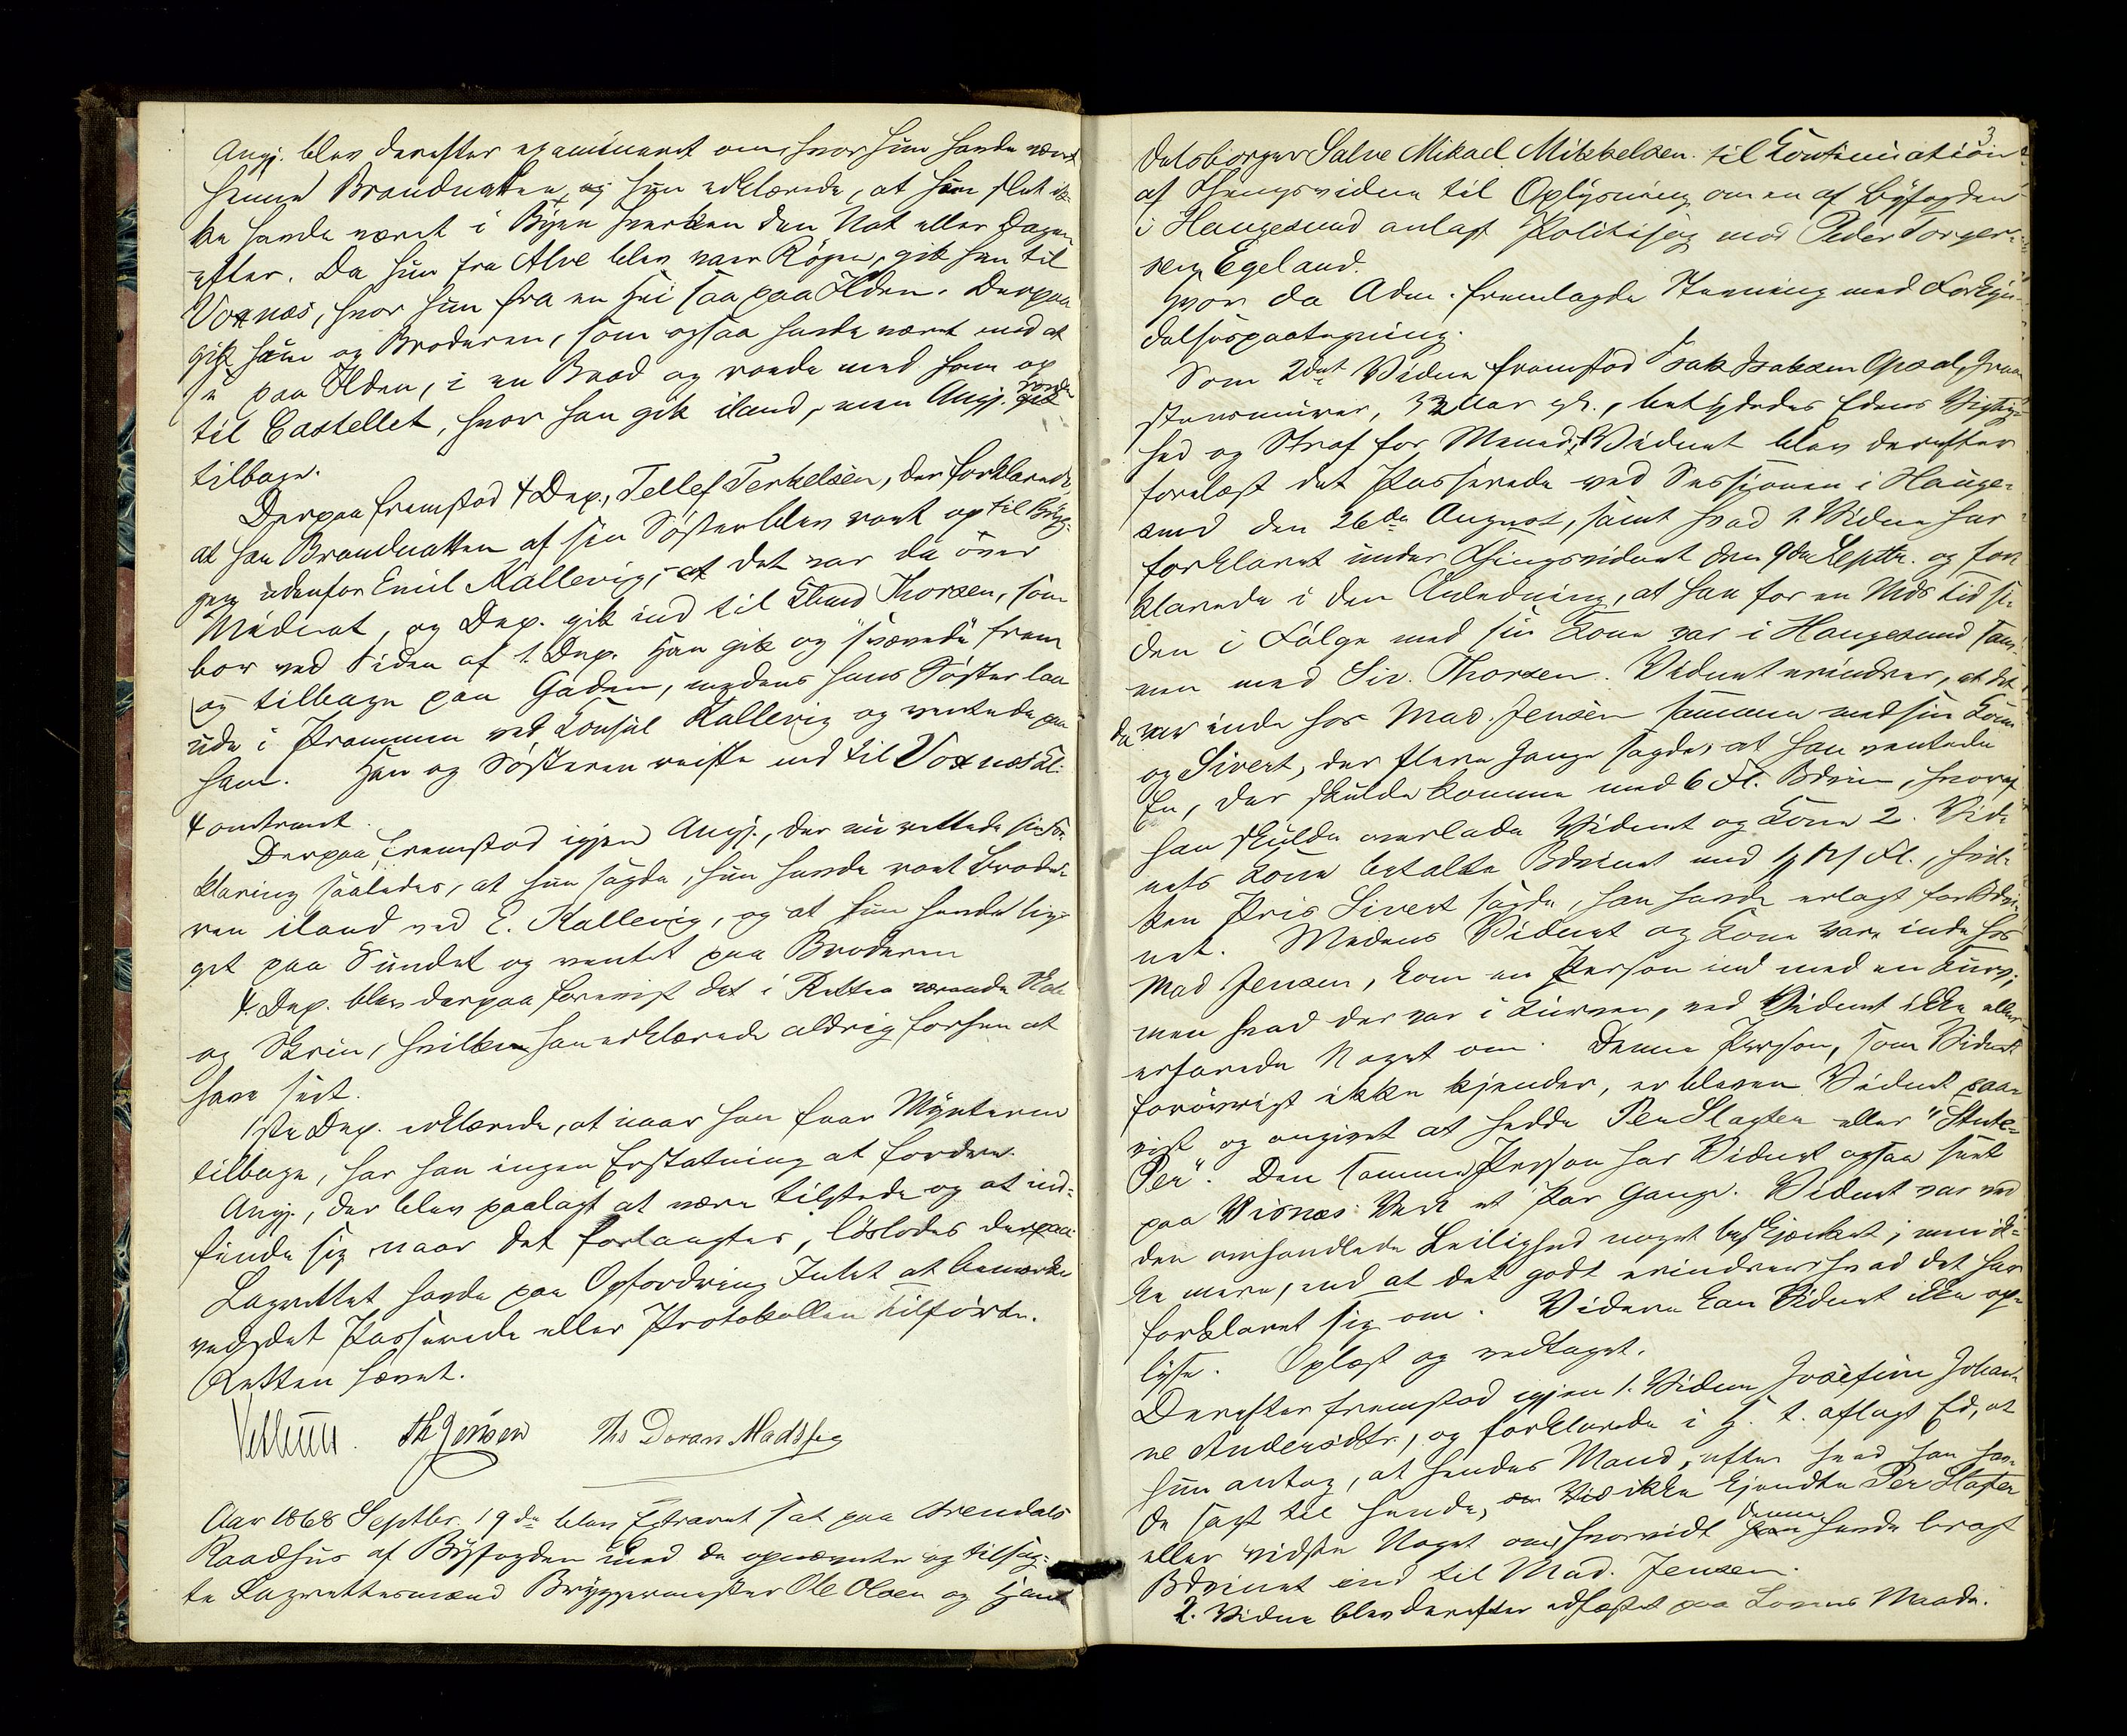 Angj. blev derefter examineret om, hvor hun havde været
henne Brandnatten, og hun erklærede, at hun slet ik-
ke havde været i Byen hverken den Nat eller Dagen
efter. Da hun fra Alve blev vaer Røgen, gik hun til
Voxnæs, hvor hun fra en Hei saa paa Ilden. Derpaa
gik hun og Broderen, som ogsaa havde været med at
se paa Ilden, i en Baad og roede med ham op
til Castellet, hvor han gik iland, men Angj. roede
tilbage.
Derpaa fremstod 4 Dep., Tellef Terkelsen, der forklarede,
at han Brandnatten af sin Søster blev roet op til Bryg-
gen udenfor Emil Kallevig, at det var da over
Midnat, og Dep. gik ind til Thorsen, som
bor ved Siden af 1. Dep. Han gik og "svævede" frem
og tilbage paa Gaden, medens hans Søster laa
ude i Prammen ved Konsul Kallevig og ventede paa
ham. Han og Søsteren reiste ud til Voxnæs Kl.
4 omtrent.
Derpaa fremstod igjen Angj., der nu rettede sin For-
klaring saaledes, at hun sagde, hun havde roet Brode-
ren iland ved E. Kallevig, og at hun havde lig-
get paa Sundet og ventet paa Broderen
4. Dep. blev derpaa forevist det i Retten værende
og Skrin, hvilke han erklærede aldrig forhen at
have seet.
1ste Dep. erklærede, at naar han faar Mynterne
tilbage, har han ingen Erstatning at fordre.
Angj., der blev paalagt at være tilstede og at ind-
finde sig naar det forlangtes, løslodes derpaa
Lagrettet havde paa Opfordring Intet at bemærke
ved det Passerede eller Protokollen Tilførte.
Retten hævet.
Th Jensen Ths Doran Madssen
Aar 1868 Septbr. 19de blev Extraret sat paa Arendals
Raadhus af Byfogden med de opnævnte og tilsag-
te Lagrettesmænd Bryggermester Ole Olsen og Han-
3
delsborger Salve Mikael Mikkelsen til Continuation
af Thingsvidne til Oplysning om en af Byfogden
i Haugesund anlagt Politisag mod Peder Torger-
sen Egeland.
Hvor da Adm. fremlagde Stevning med Forkyn-
delsespaategning.
Som 2det Vidne fremstod Isak Isaksen Opsal, Graa-
stensmurer, 32 Aar gl., betydedes Edens Vigtig-
hed og Straf for Mened. Vidnet blev derefter
forelæst det Passerede ved Sessionen i Hauge-
sund den 26de August, samt hvad 1. Vidne har
forklaret under Thingsvidnet den 9de Septbr. og for-
klarede i den Anledning, at han for en Mds Tid si-
den i Følge med sin Kone var i Haugesund sam-
men med Siv. Thorsen. Vidnet erindrer, at det
da var inde hos Mad. Jensen sammen med sin Kone
og Sivert, der flere Gange sagde, at han ventede
En, der skulde komme med 6 Fl. Bdvin, hvoraf
han skulde overlade Vidnet og Kone 2. Vid-
nets Kone betalte Bdvinet med Fl., hvil-
ken Pris Sivert sagde, han havde erlagt for Bdvi-
net. Medens Vidnet og Kone vare inde hos
Mad Jensen, kom en Person ind med en Kurv,
men hvad der var i Kurven, ved Vidnet ikke eller
erfarede Noget om. Denne Person, som Vidnet
forøvrigt ikke kjender, er bleven Vidnet paa-
vist og angivet at hedde Per Slagter eller "Stute-
Per". Den samme Person har Vidnet ogsaa seet
paa Visnæs Verk et Par Gange. Vidnet var ved
den omhandlede Leilighed noget beskjænket, men ik-
ke mere, end at det godt erindrer hvad det har
forklaret sig om. Videre kan Vidnet ikke op-
lyse. Oplæst og vedtaget.
Derefter fremstod igjen 1. Vidne Josefine Johan-
ne Andersdtr., og forklarede i H. t. aflagt Ed, at
hun antog, at hendes Mand, efter hvad han hav-
de sagt til hende, ikke kjendte Per Slagter
eller vidste Noget om, hvorvidt denne havde bragt
Bdvinet ind til Mad. Jensen.
2. Vidne blev derefter edfæstet paa Lovens Maade.